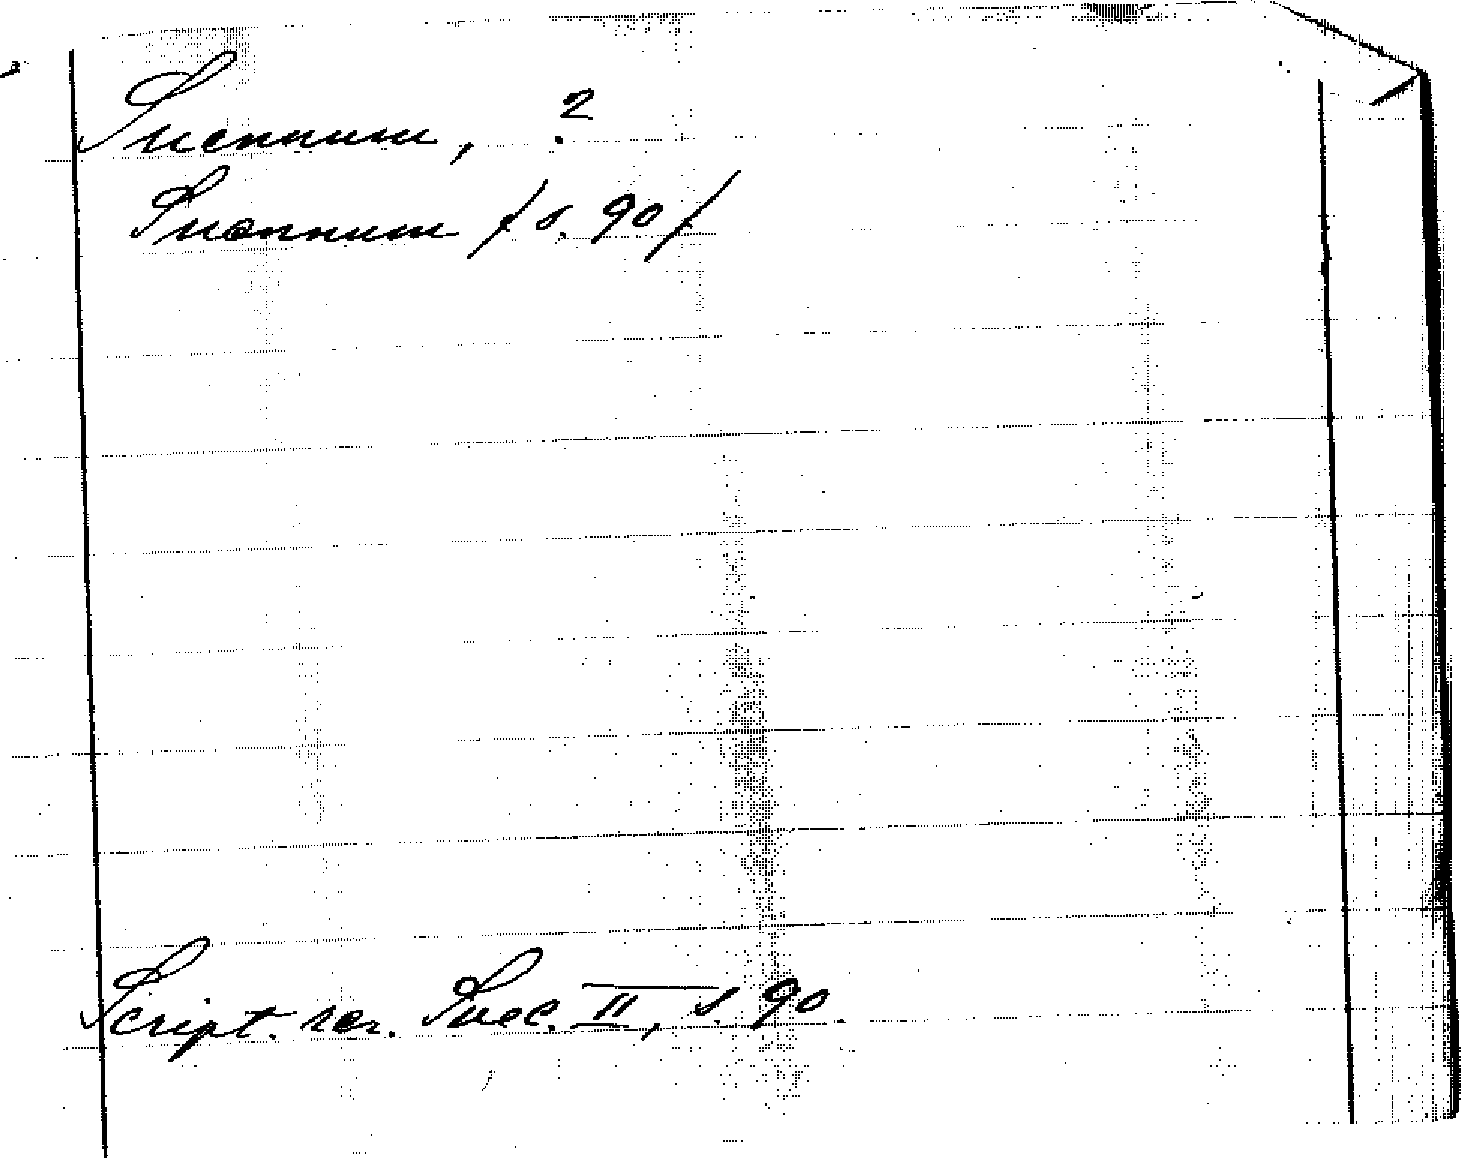 Sucnnum, ?
Suonnum / s. 90 /
Script. rer. Suec. II, s. 90.